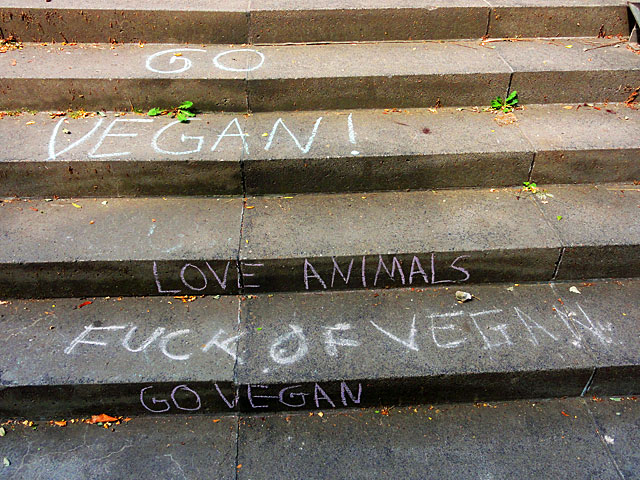 GO
VEGAN!
LOVE ANIMALS
FUCK OF VEGAN
GO VEGAN